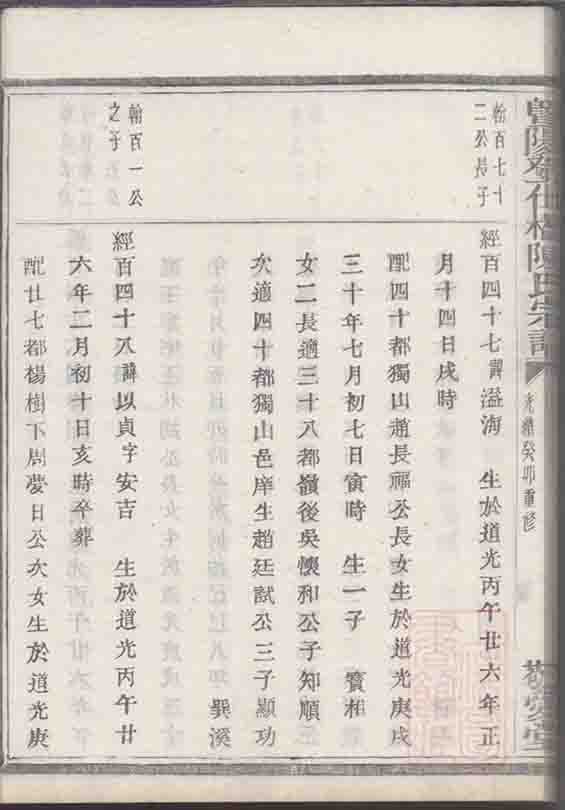 暨陽孝仁橋陳氏宗譜 光緒癸卯重修 敬愛堂
翰百七十
二公長子
經百四十七諱溢海 生於道光丙午廿六年正
月十四日戌時
配四十都獨山趙長福公長女生於道光庚戌
三十年七月初七日寅時 生一子 寳相
女二長適三十八都嶺後吳懷和公子知順
次適四十都獨山邑庠生趙廷試公三子顯功
巽溪
翰百一公
之子
經百四十八諱以貞字安吉 生於道光丙午廿
六年二月初十日亥時卒葬
配廿七都楊樹下周夢日公次女生於道光庚